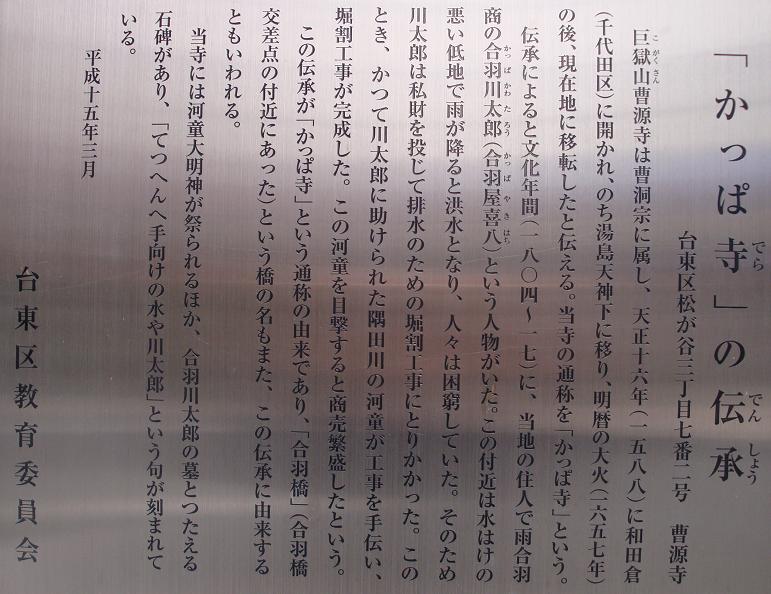 「かっぱ寺」の伝承
でら
でんしょう
台東区松が谷三丁目七番二号　曹源寺
巨嶽山曹源寺は曹洞宗に属し、天正十六年（一五八八）に和田倉
こがくさん
（千代田区）に開かれ、のち湯島天神下に移り、明暦の大火（一六五七年）
の後、現在地に移転したと伝える。当寺の通称を「かっぱ寺」という。
伝承によると文化年間（一八〇四～一七）に、当地の住人で雨合羽
商の合羽川太郎（合羽屋喜八）という人物がいた。この付近は水はけの
かっぱかわたろう
かっぱやきはち
悪い低地で雨が降ると洪水となり、人々は困窮していた。そのため
川太郎は私財を投じて排水のための堀割工事にとりかかった。この
とき、かつて川太郎に助けられた隅田川の河童が工事を手伝い、
堀割工事が完成した。この河童を目撃すると商売繁盛したという。
この伝承が「かっぱ寺」という通称の由来であり、「合羽橋」（合羽橋
交差点の付近にあった）という橋の名もまた、この伝承に由来する
ともいわれる。
当寺には河童大明神が祭られるほか、合羽川太郎の墓とつたえる
石碑があり、「てつへんへ手向けの水や川太郎」という句が刻まれて
いる。
平成十五年三月
台東区教育委員会